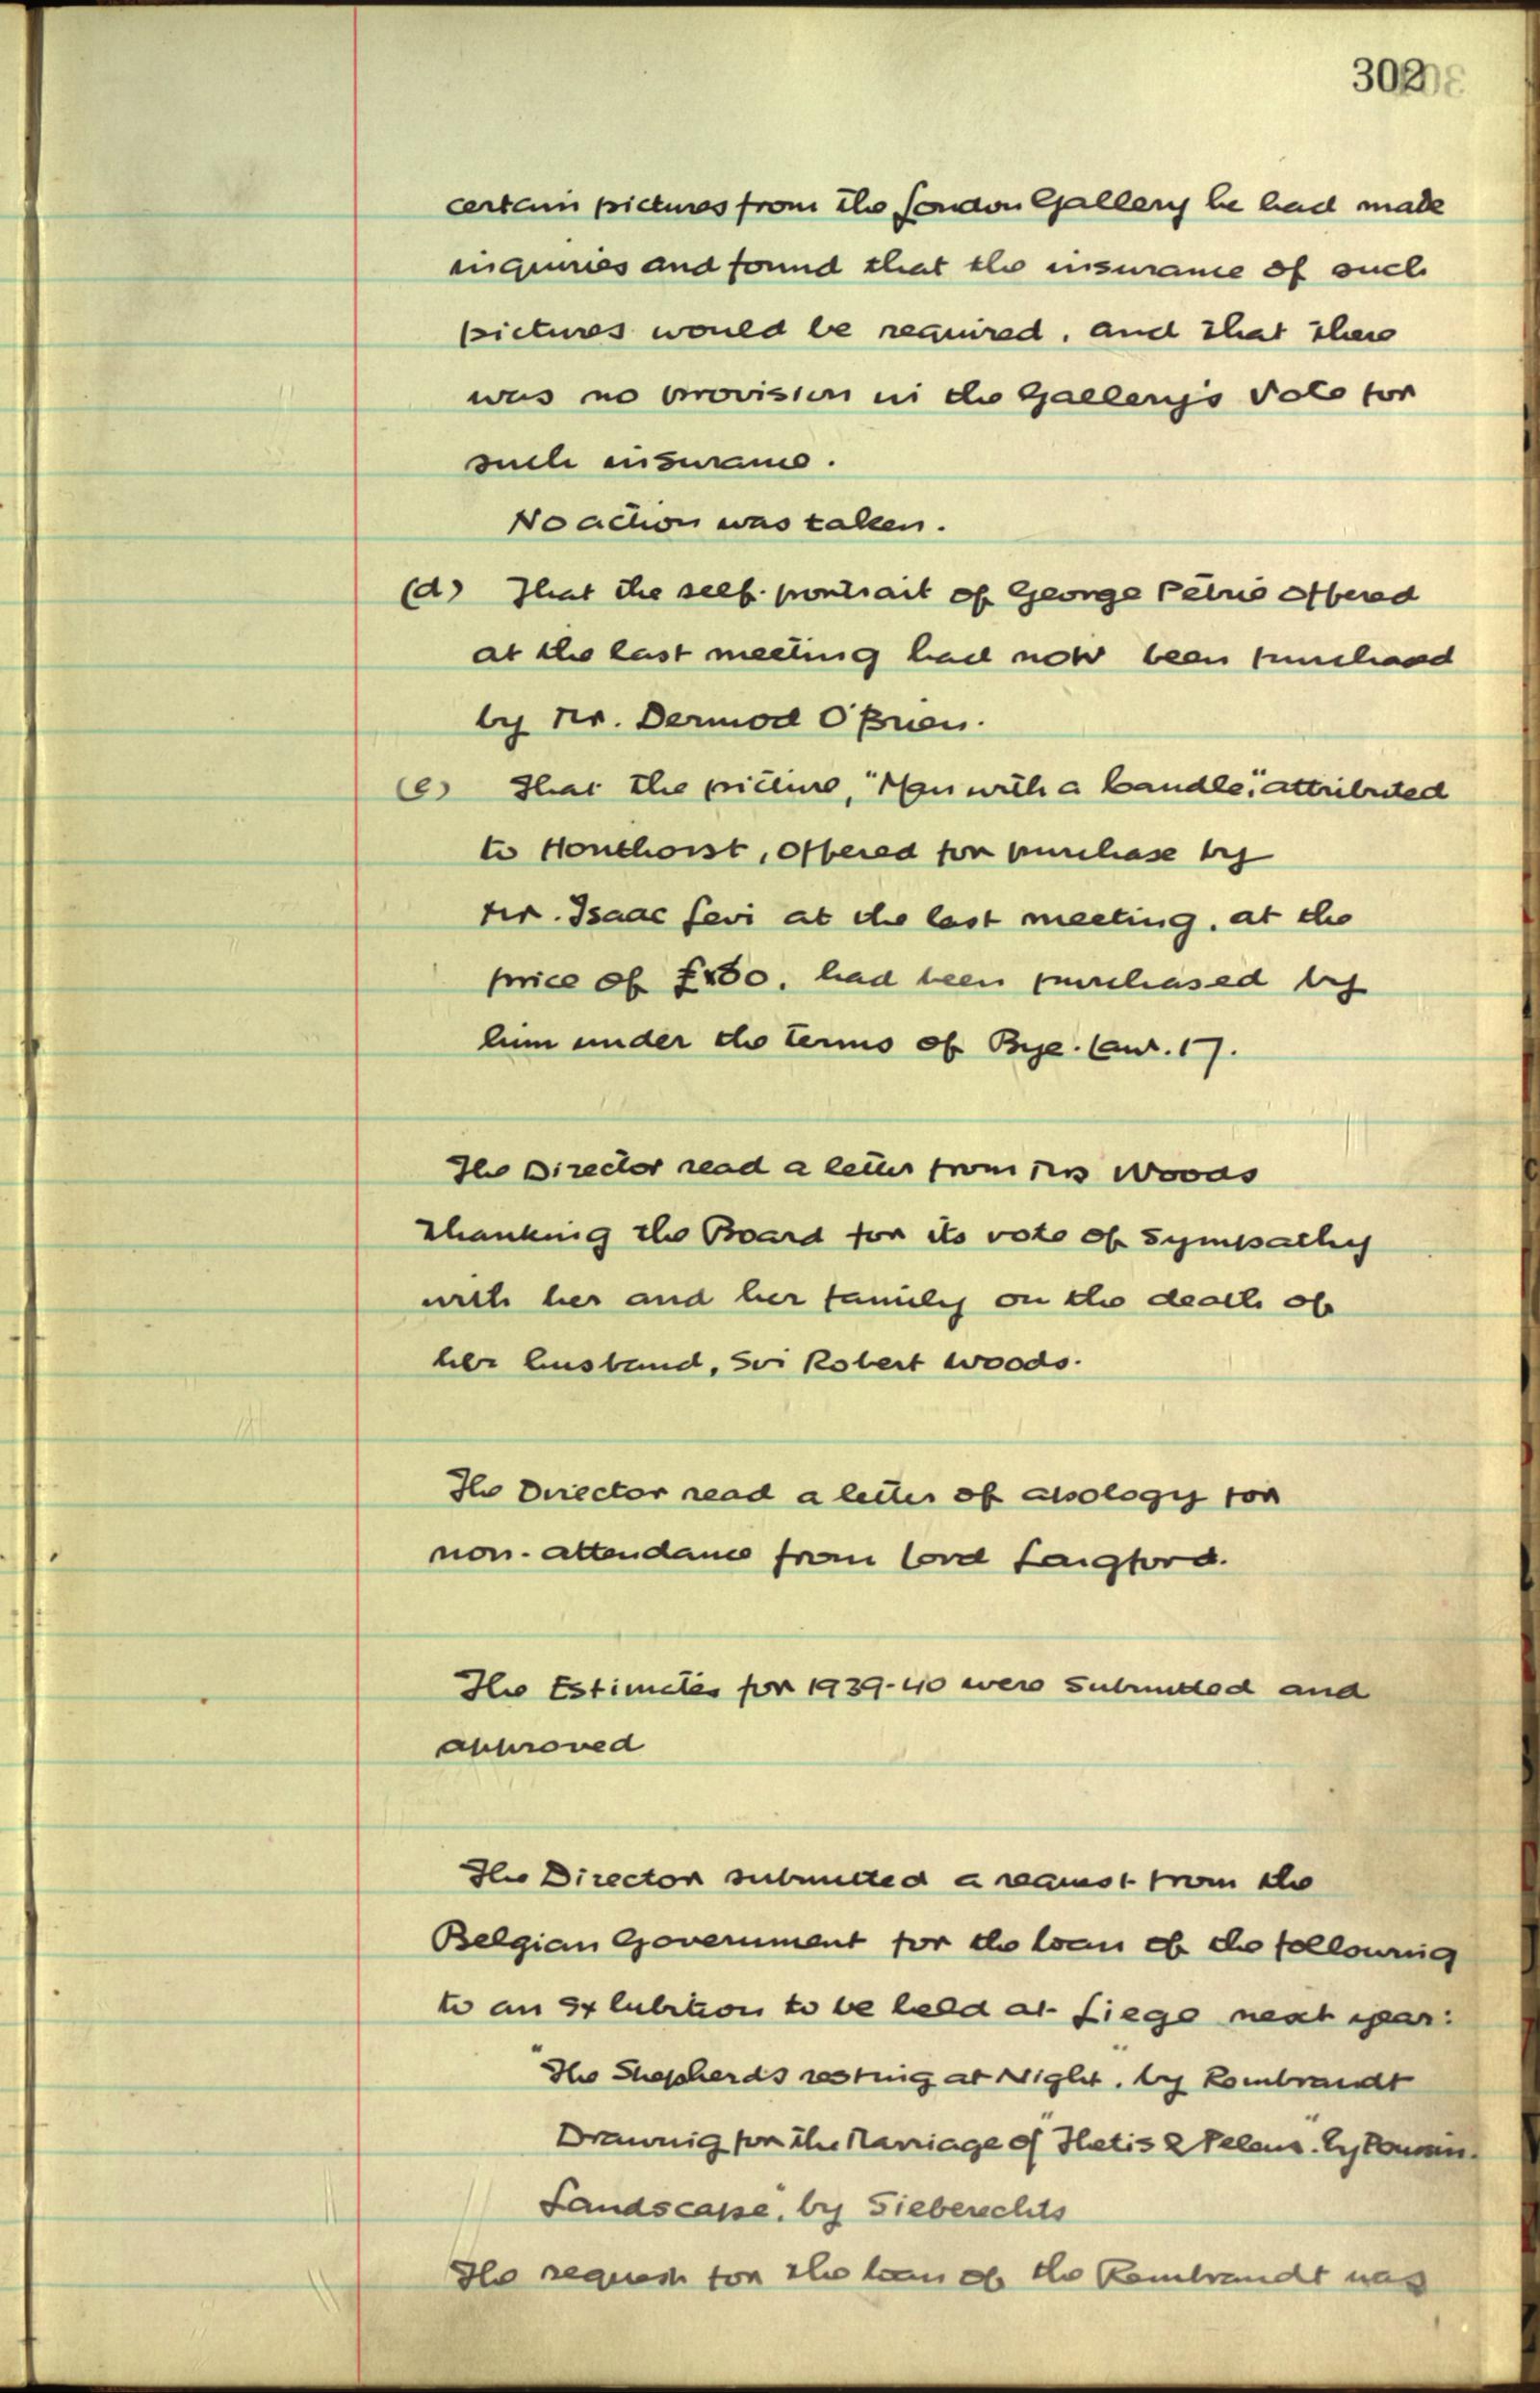 302
certain pictures from the London Gallery he had made
inquiries and found that the insurance of such
pictures would be required, and that there
was no provision in the Gallery's Vote for
such insurance.
No action was taken.
(d) That the self-portrait of George Petrie offered
at the last meeting had now been purchased
by Mr. Dermod O'Brien.
(e) That the picture, "Man with a Candle", attributed
to Honthorst, offered for purchase by
Mr. Isaac Levi at the last meeting, at the
price of had been purchased by
him under the terms of Bye-Law. 17.
The Director read a letter from Woods
thanking the Board for its vote of sympathy
with her and her family on the death of
her husband, Sir Robert Woods.
The Director read a letter of apology for
non-attendance from Lord Longford.
The Estimates for 1939-40 were submitted and
approved
The Director submitted a request from the
Belgian Government for the loan of the following
to an Exhibition to be held at Liege next year:
"The Shepherds resting at Night", by Rembrandt
Drawing for the Marriage of "Thetis & Peleus". by Poussin.
Landscape", by Sieberechts
The request for the loan of the Rembrandt was